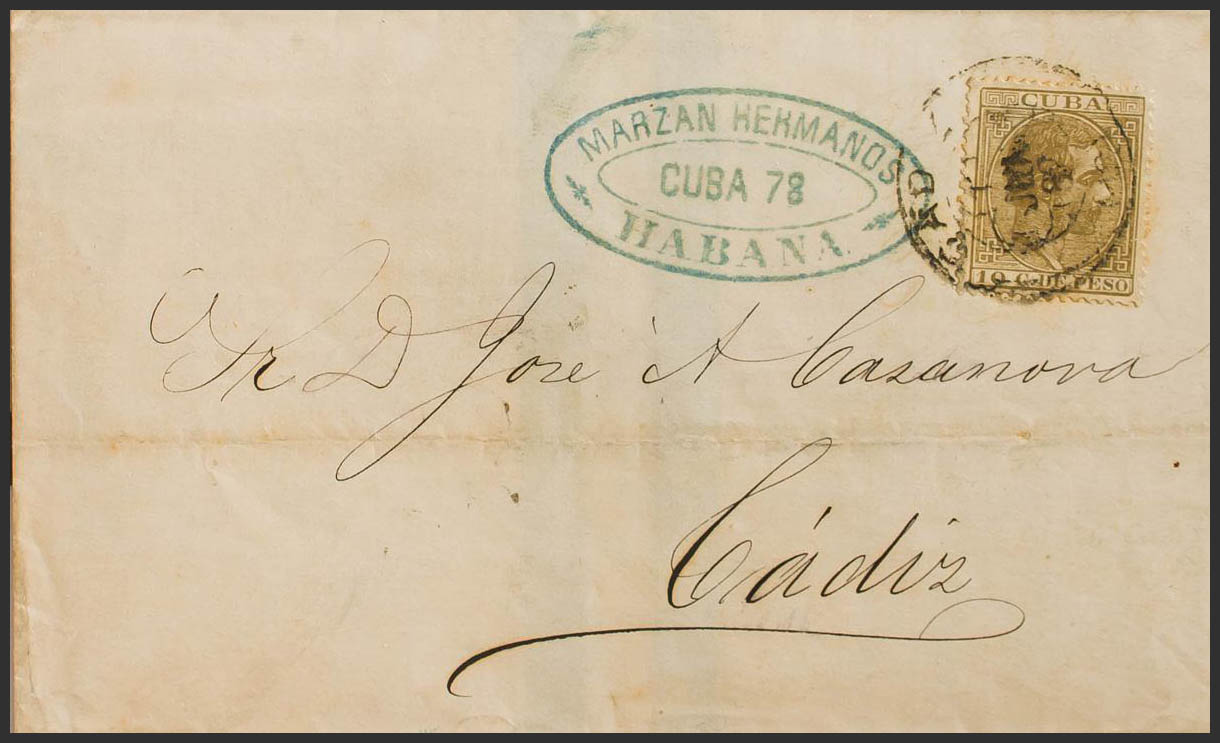 MARZAN HERMANOS
CUBA 78
HABANA
CUBA
10 C. DE PESO
Sr D Jose A Casanova
Cádiz